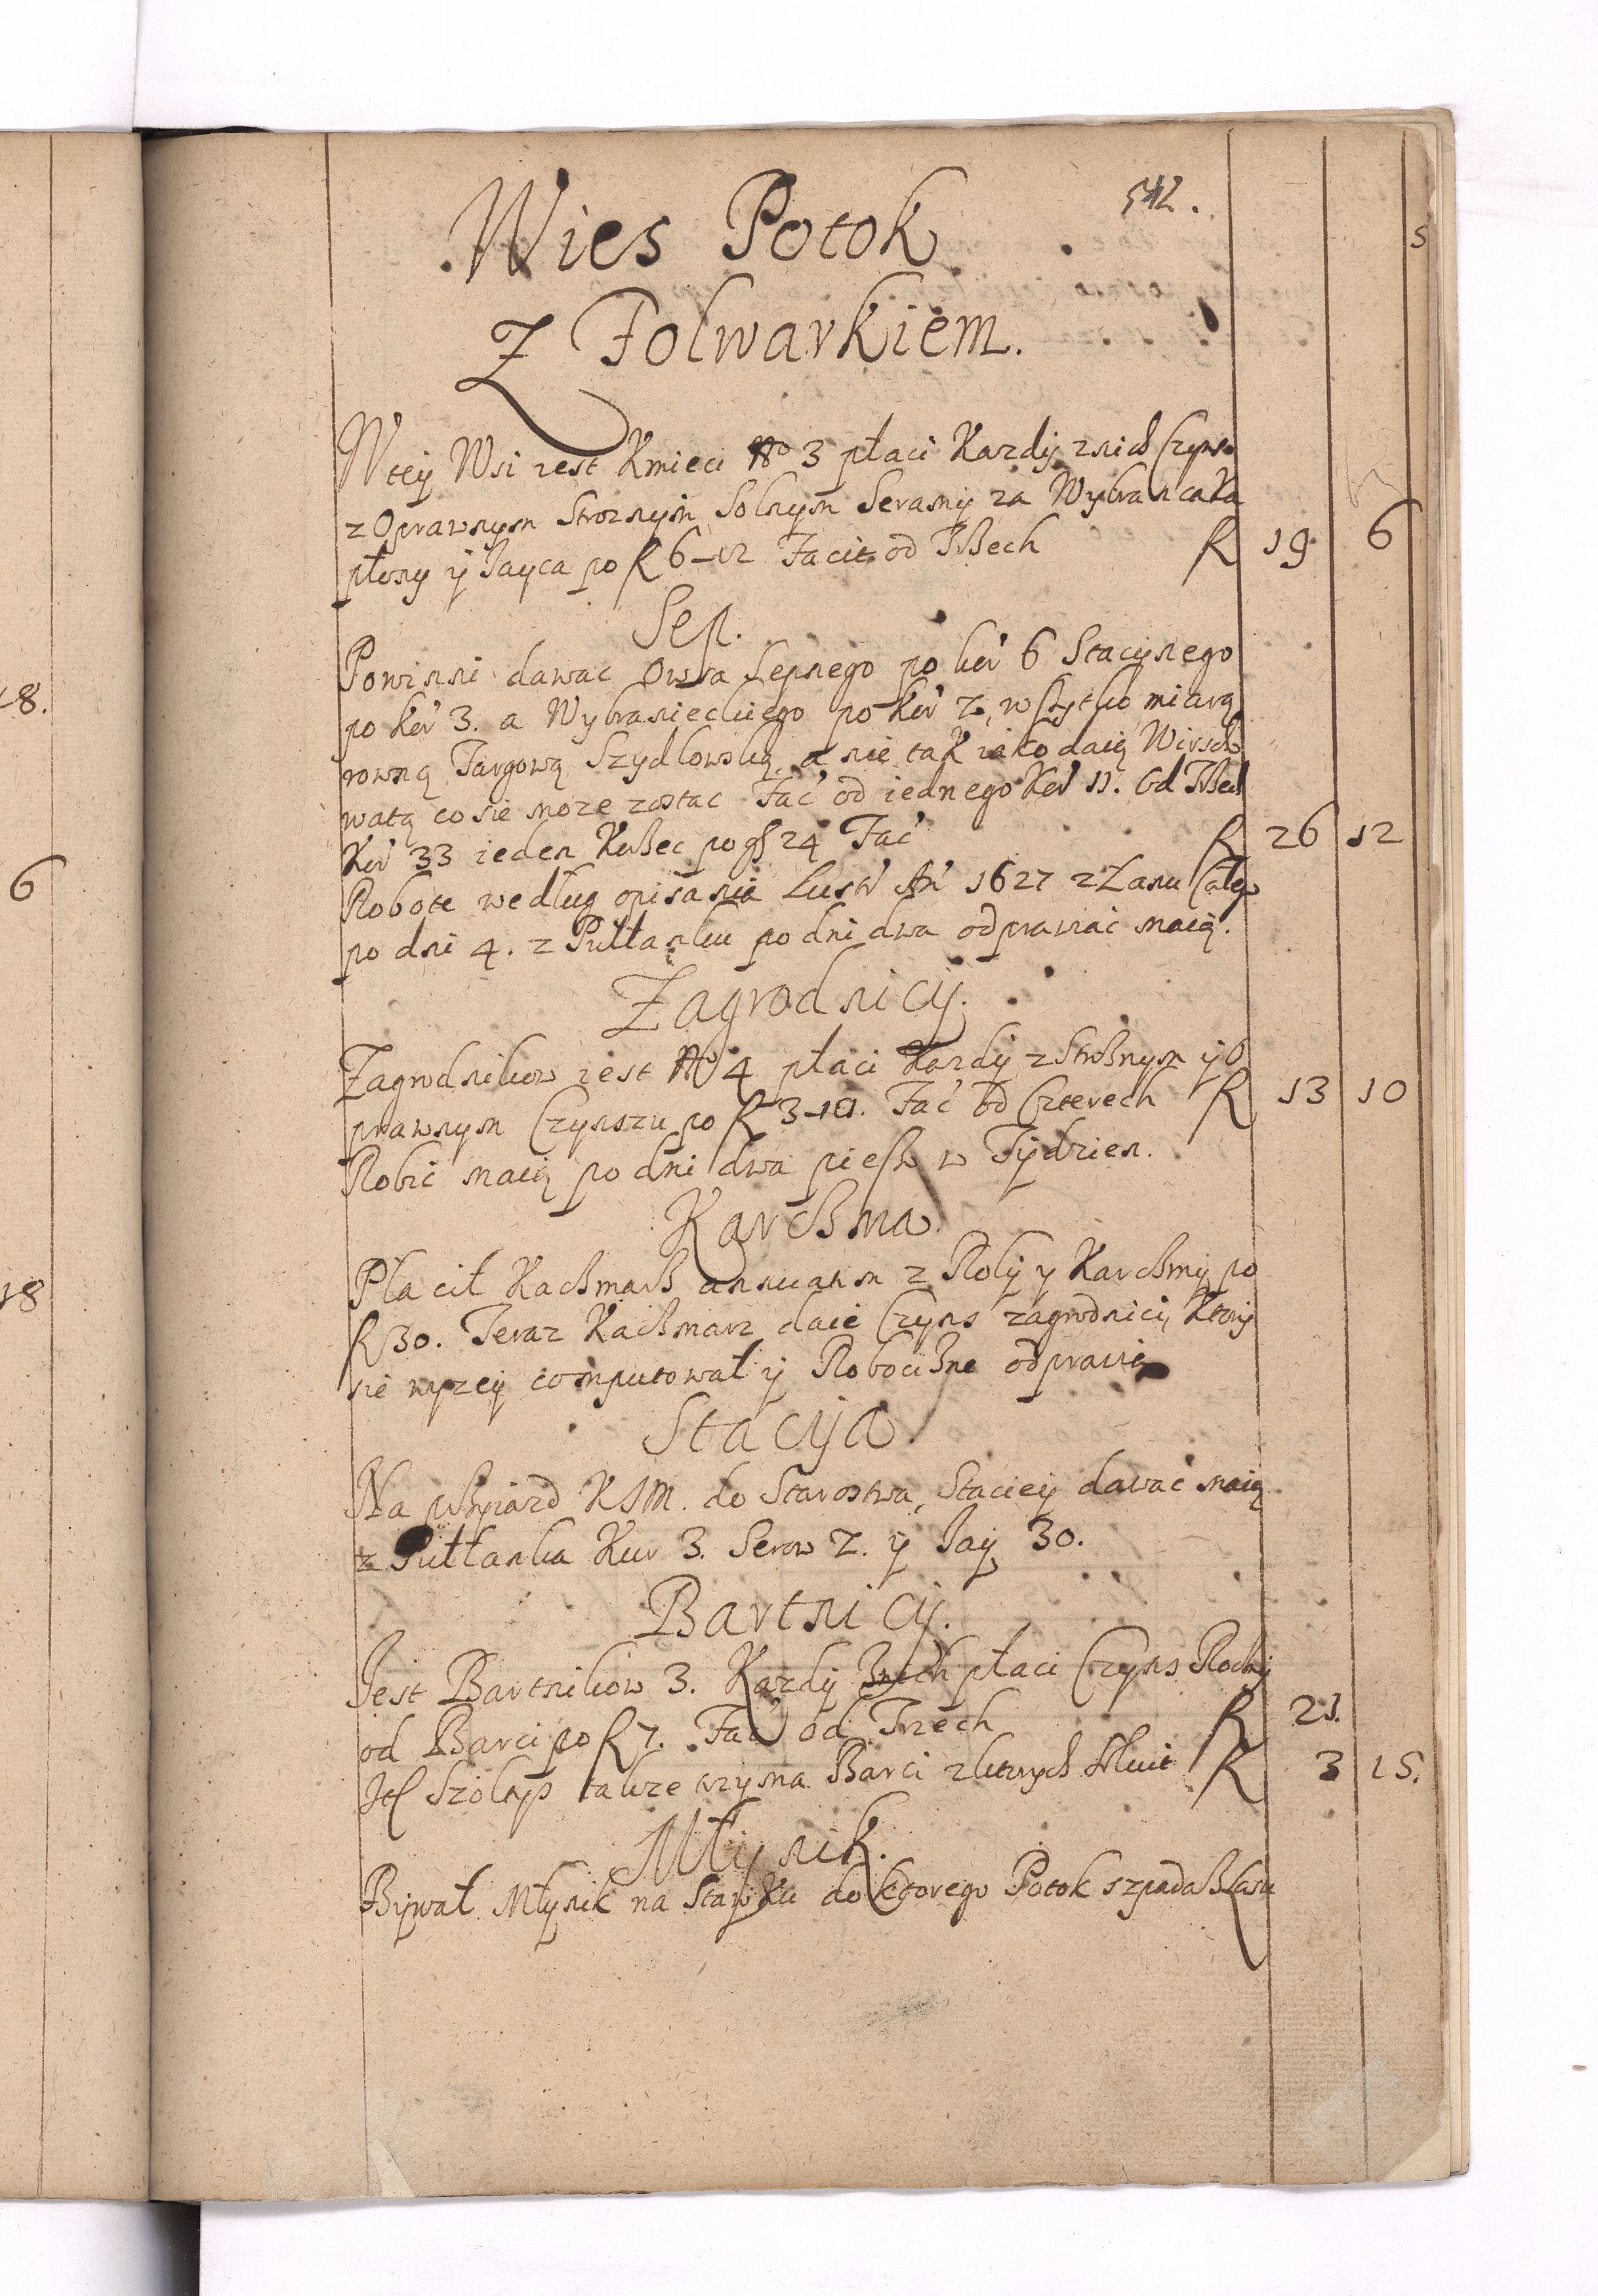 542.
Wies Potok
Z Folwarkiem.
W tey Wsi iest Kmieci No 3 płaci Kazdy z nich Czynsu
z Oprawnym Stroznym, Solnym Seramy za Wybrancaka
płony y Jayca po R 6–12 Facit od Trzech R 19 6
Sep.
Powinni dawac Owsa Sepnego po kor 6 Stacyinego
po kor 3. a Wybranieckiego po kor 2, wszytko miarą
rowną Targową Szydlowską, a nie tak iako daią Wirzcho
watą co sie moze zostac Fac od iednego Kor 11. Od Trzech
Kor 33 ieden Korzec po gß 24 Fac R 26 12
Robote według opisania Lustr An 1627 z Łanu Całego
po dni 4. z Pułłanku po dni dwa odprawiać maią.
Zagrodnicy.
Zagrodnikow iest No 4 płaci Kazdy z Stroznym y O
prawnym Czynszu po R 3–10. Fac od Czterech R 13 10
Robić maią po dni dwa pieszo w Tydzien.
Karczma
Płacił Kaczmarz annuatim z Roly y Karczmy po
R 30. Teraz Kaczmarz daie Czyns zagrodnici, Ktory
sie wyzey computował y Roboczizne odprawia
Stacyia.
Na przyiazd KJM. do Starostwa, Staciey dawać maią
z Pułłanka Kur 3. Serow 2. y Jay 30.
Bartnicy.
Jest Bartnikow 3. Kazdy z nich płaci Czyns Roczny
od Barci po R 7. Fac od Trzech R 21.
Jtẽ Szoltys takze trzyma Barci z ktorych R 3 15.
Młynik.
Bywał Młynik na Stawku do ktorego Potok szpada z Lasu
18.
6
18